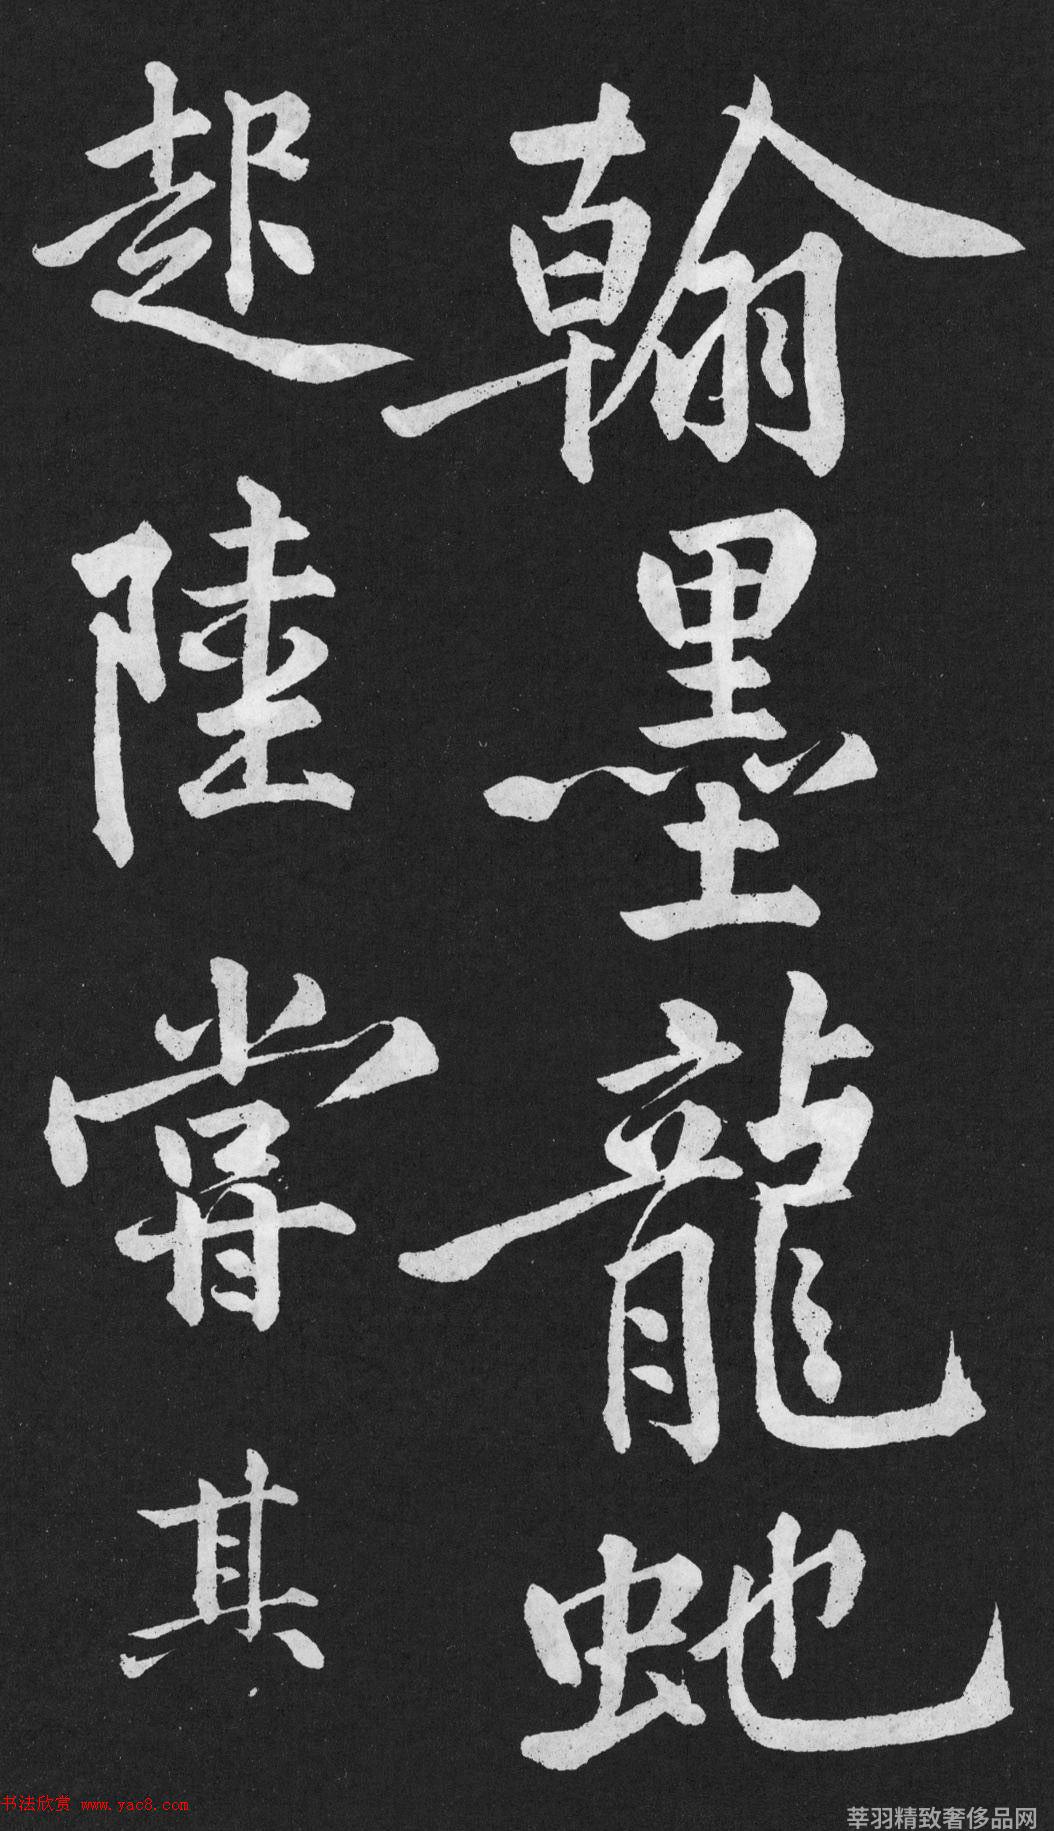 翰墨龍虵
起陸嘗其
书法欣赏 www.yac8.com
莘羽精致奢侈品网